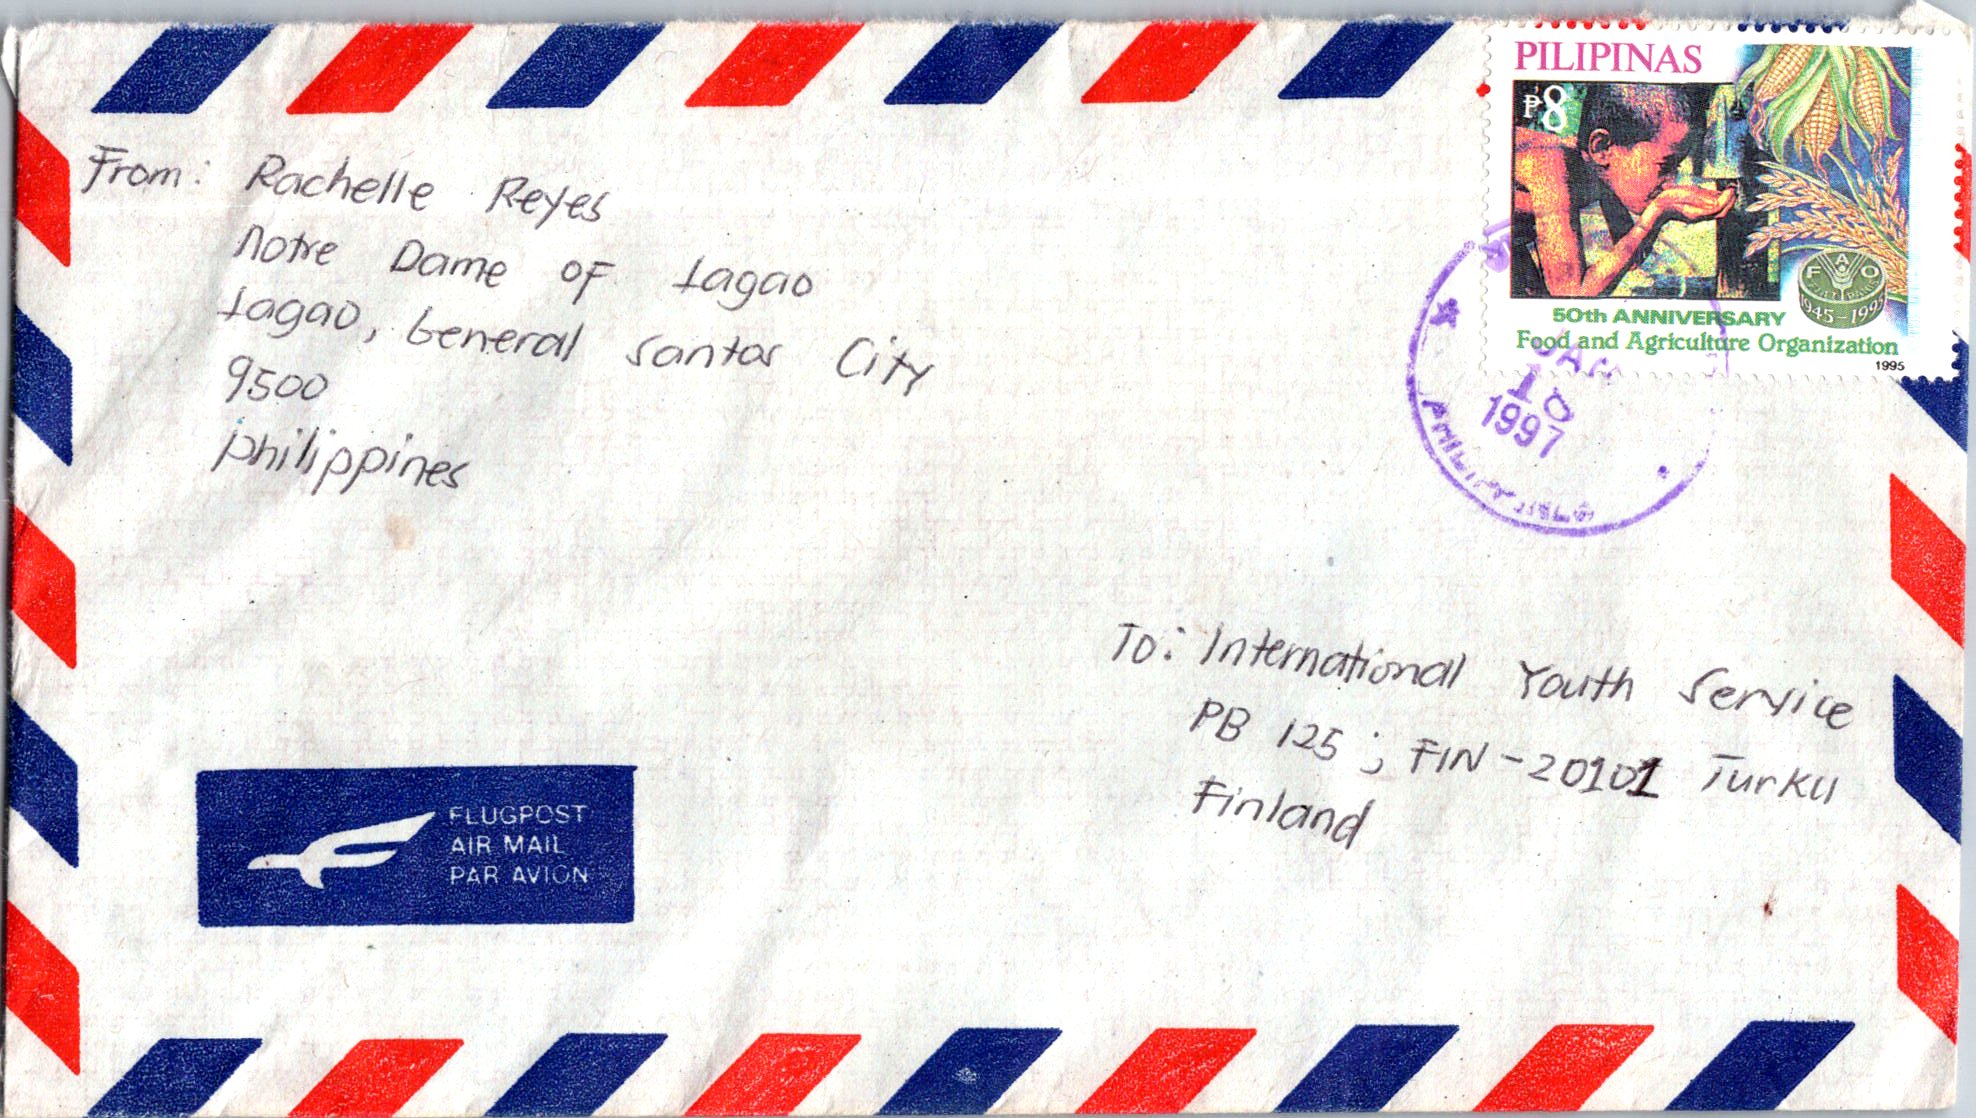 From: Rachelle Reyes
Notre Dame of Lagao
Lagao, General Santos City
9500
Philippines
PILIPINAS
₱8
FAO
FIAT PANIS
1945-1995
50th ANNIVERSARY
Food and Agriculture Organization
1995
JAN
1997
PHILIPPINES
To: International Youth Service
PB 125; FIN-20101 Turku
Finland
FLUGPOST
AIR MAIL
PAR AVION